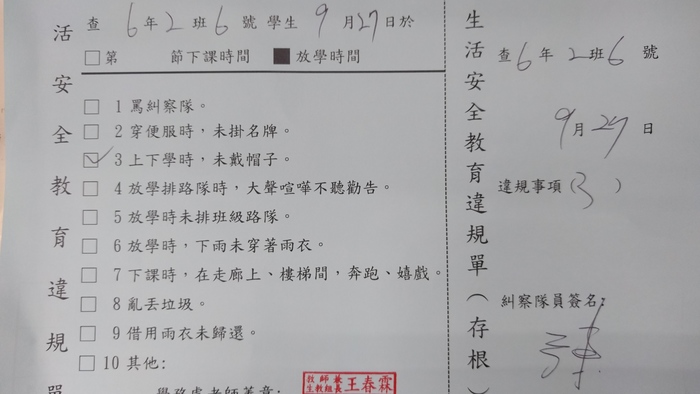 活安全教育違規單
查 6年2班6號學生 9月27日於
□第 節下課時間 ■放學時間
□ 1 罵糾察隊。
□ 2 穿便服時，未掛名牌。
☑ 3 上下學時，未戴帽子。
□ 4 放學排路隊時，大聲喧嘩不聽勸告。
□ 5 放學時未排班級路隊。
□ 6 放學時，下雨未穿著雨衣。
□ 7 下課時，在走廊上、樓梯間，奔跑、嬉戲。
□ 8 亂丟垃圾。
□ 9 借用雨衣未歸還。
□ 10 其他:
學務處老師蓋章:
教師兼
生教組長
王春霖
生活安全教育違規單(存根)
查6年2班6號
9月27日
違規事項(3)
糾察隊員簽名: